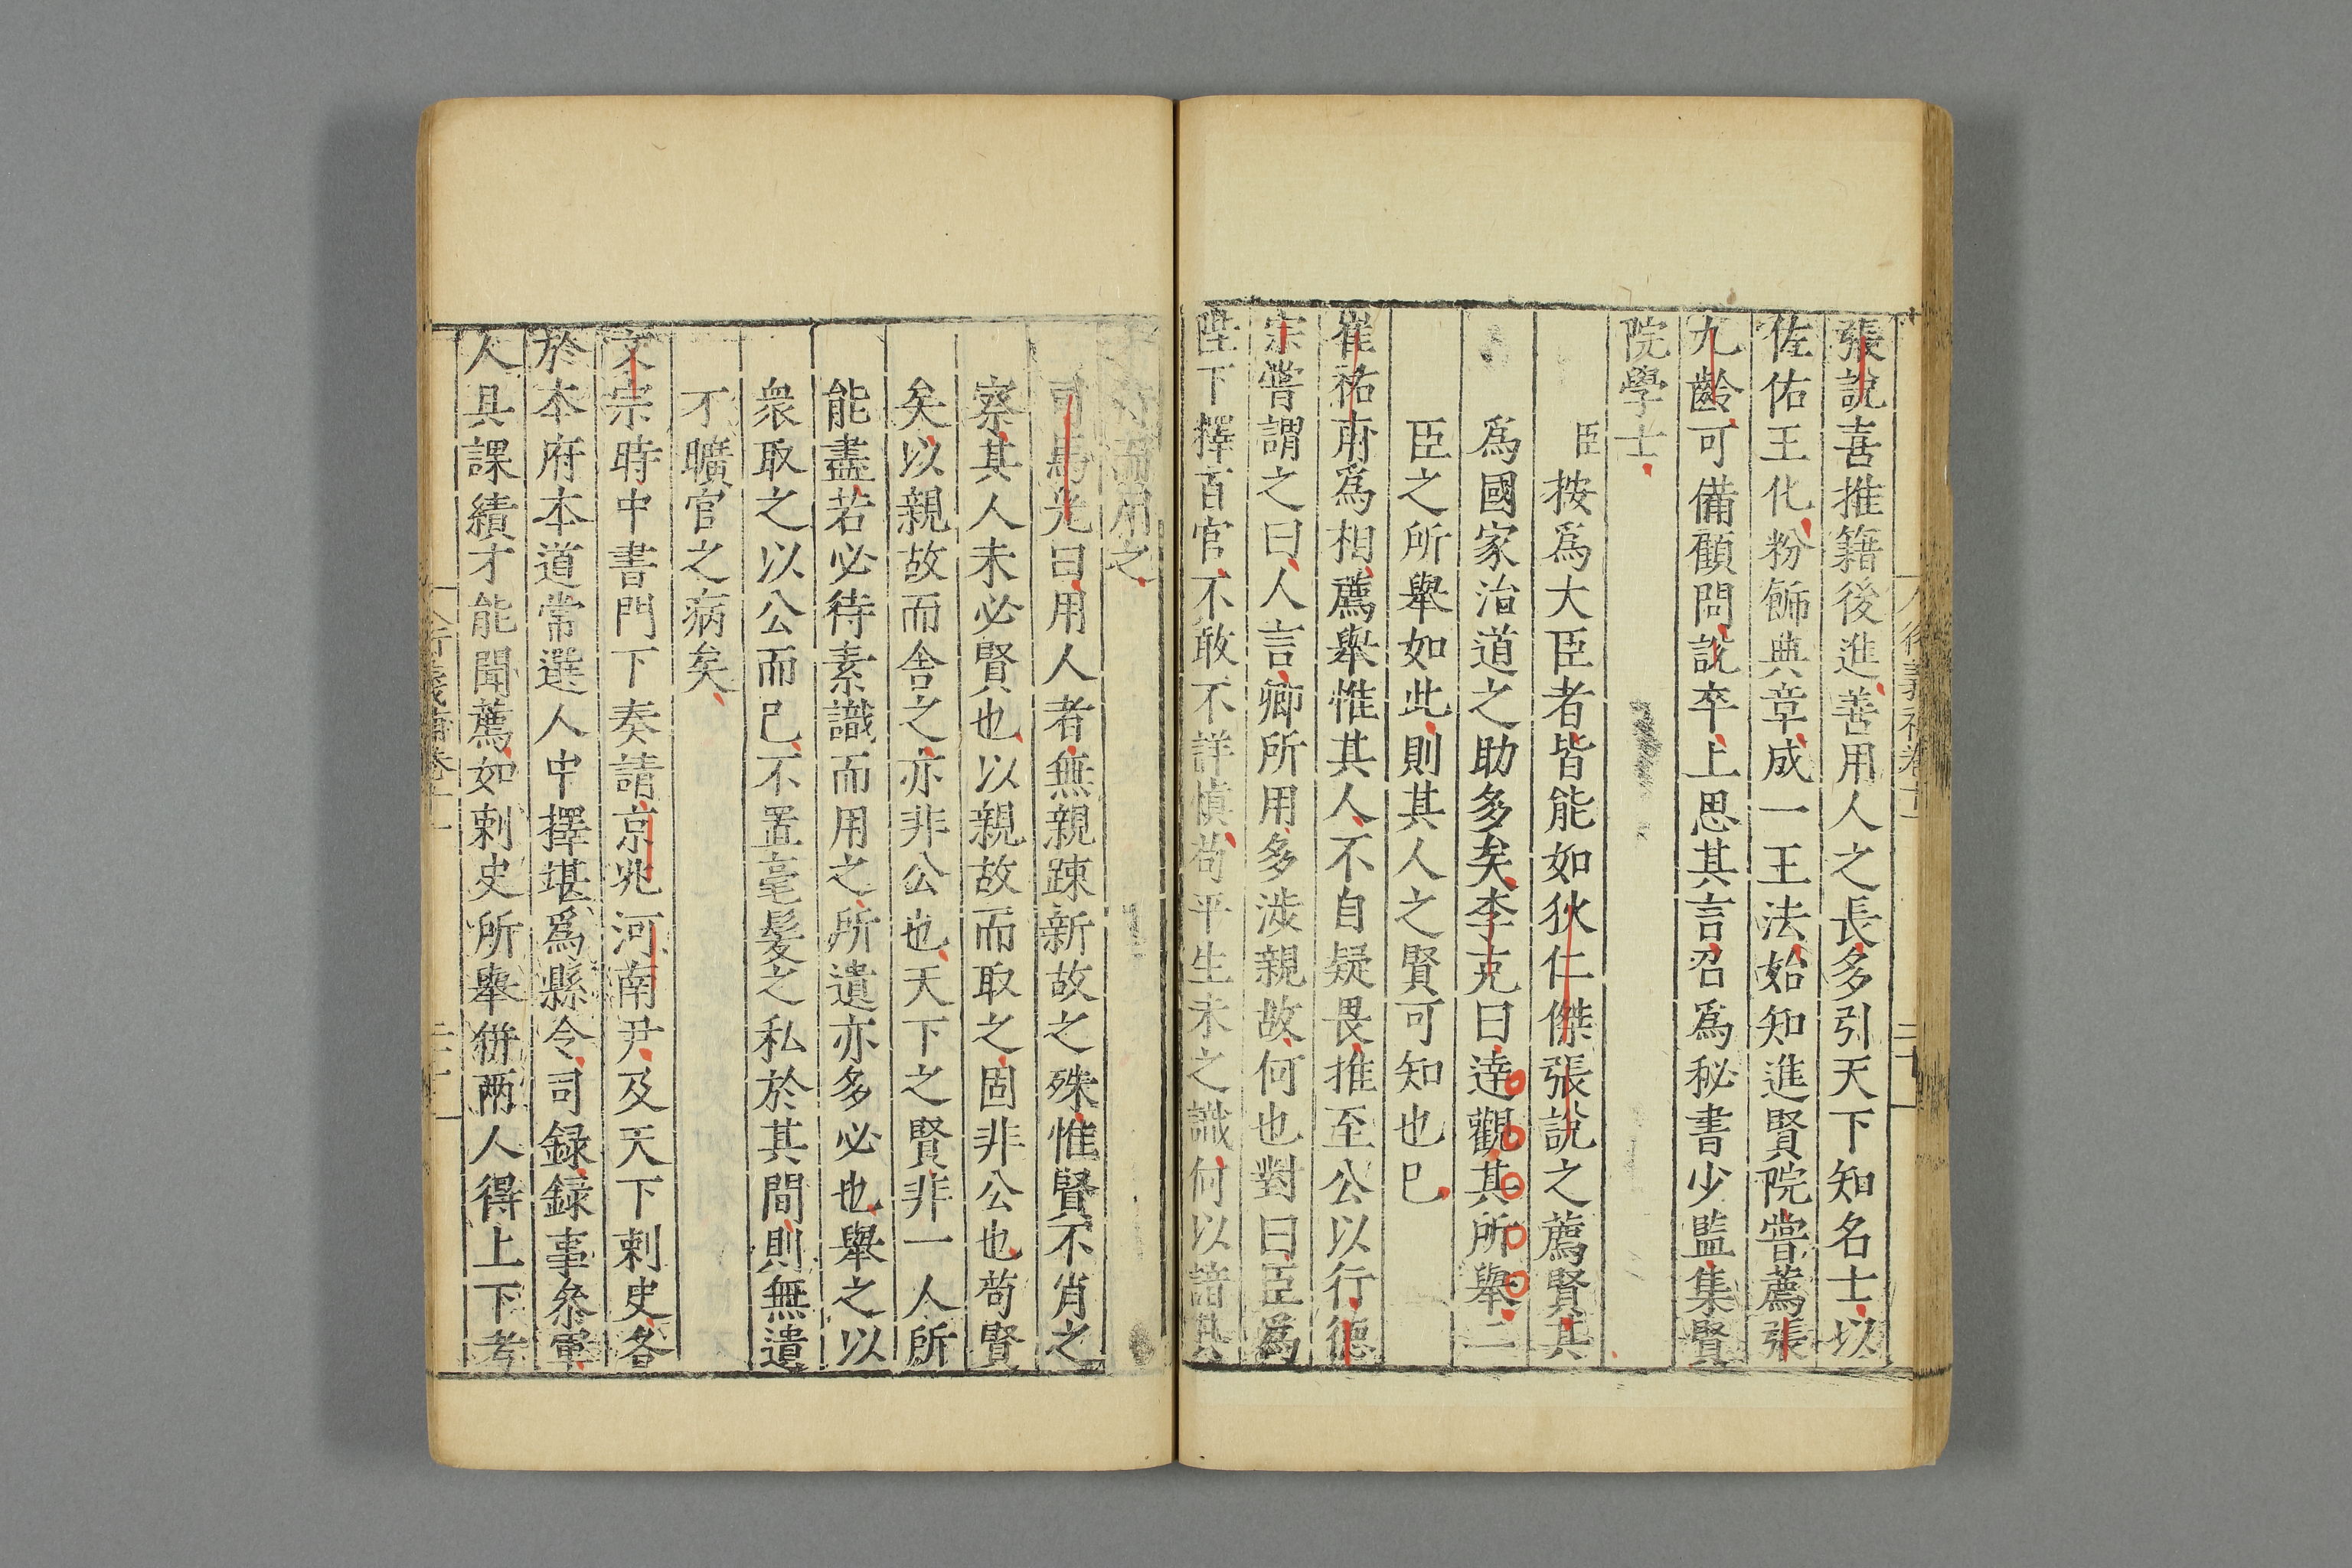 張說喜推籍後進善用人之長多引天下知名士以
佐佑王化粉飾典章成一王法始知進賢院嘗薦張
九齡可備顧問說卒上思其言召爲秘書少監集賢
院學士
臣按爲大臣者皆能如狄仁傑張說之薦賢其
爲國家治道之助多矣李克曰達觀其所舉二
臣之所舉如此則其人之賢可知也已
崔祐甫爲相薦舉惟其人不自疑畏推至公以行德
宗嘗謂之曰人言卿所用多涉親故何也對曰臣爲
陛下擇百官不敢不詳慎苟平生未之識何以諳其
才行而用之
司馬光曰用人者無親踈新故之殊惟賢不肖之
察其人未必賢也以親故而取之固非公也苟賢
矣以親故而舍之亦非公也天下之賢非一人所
能盡若必待素識而用之所遺亦多必也舉之以
衆取之以公而已不置毫髮之私於其間則無遺
不曠官之病矣
文宗時中書門下奏請京兆河南尹及天下刺史各
於本府本道常選人中擇堪爲縣令司録録事叅軍
人具課績才能聞薦如刺史所舉併兩人得上下考